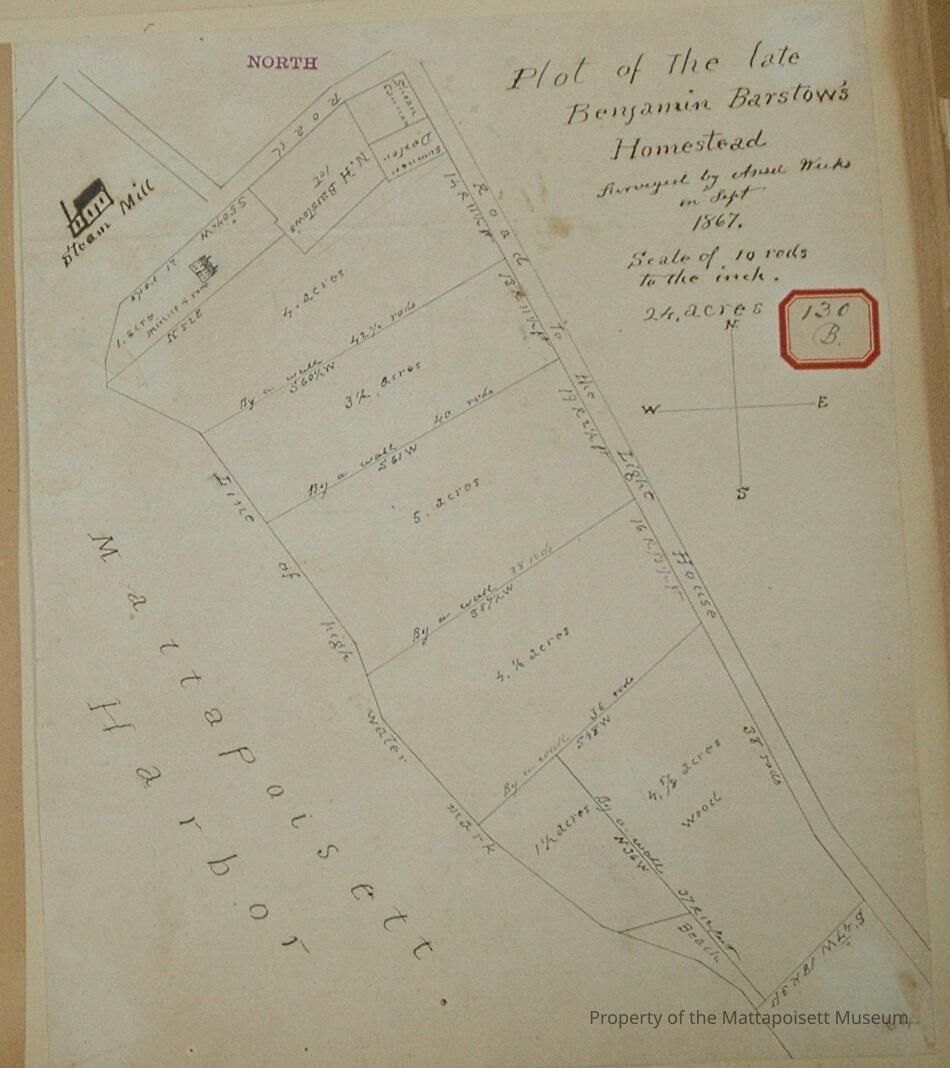 NORTH
Plot of the late
Benjamin Barstow's
Homestead
Surveyed by Ansel Weeks
in Sept
1867.
Scale of 10 rods
to the inch.
24, acres
130
B.
N
W
E
S
Steam Mill
Road
N. H. Barstow's
lot
Dexter
S 50½ W
21 rods
1. acre
minus 4 rods
4. acres
By a wall 42½ rods
S 60½ W
3½ acres
By a wall 40 rods
S 61 W
5. acres
By a wall 38 rods
S 57½ W
4.½ acres
By a wall 36 rods
S 48 W
4.⅝ acres
Wood
1½ acres
By a wall
N 36 W
Beach
38 rods
S. 47 W 18 R 3 ft
Road to the Light House
Line of high water mark
Mattapoisett
Harbor
Property of the Mattapoisett Museum